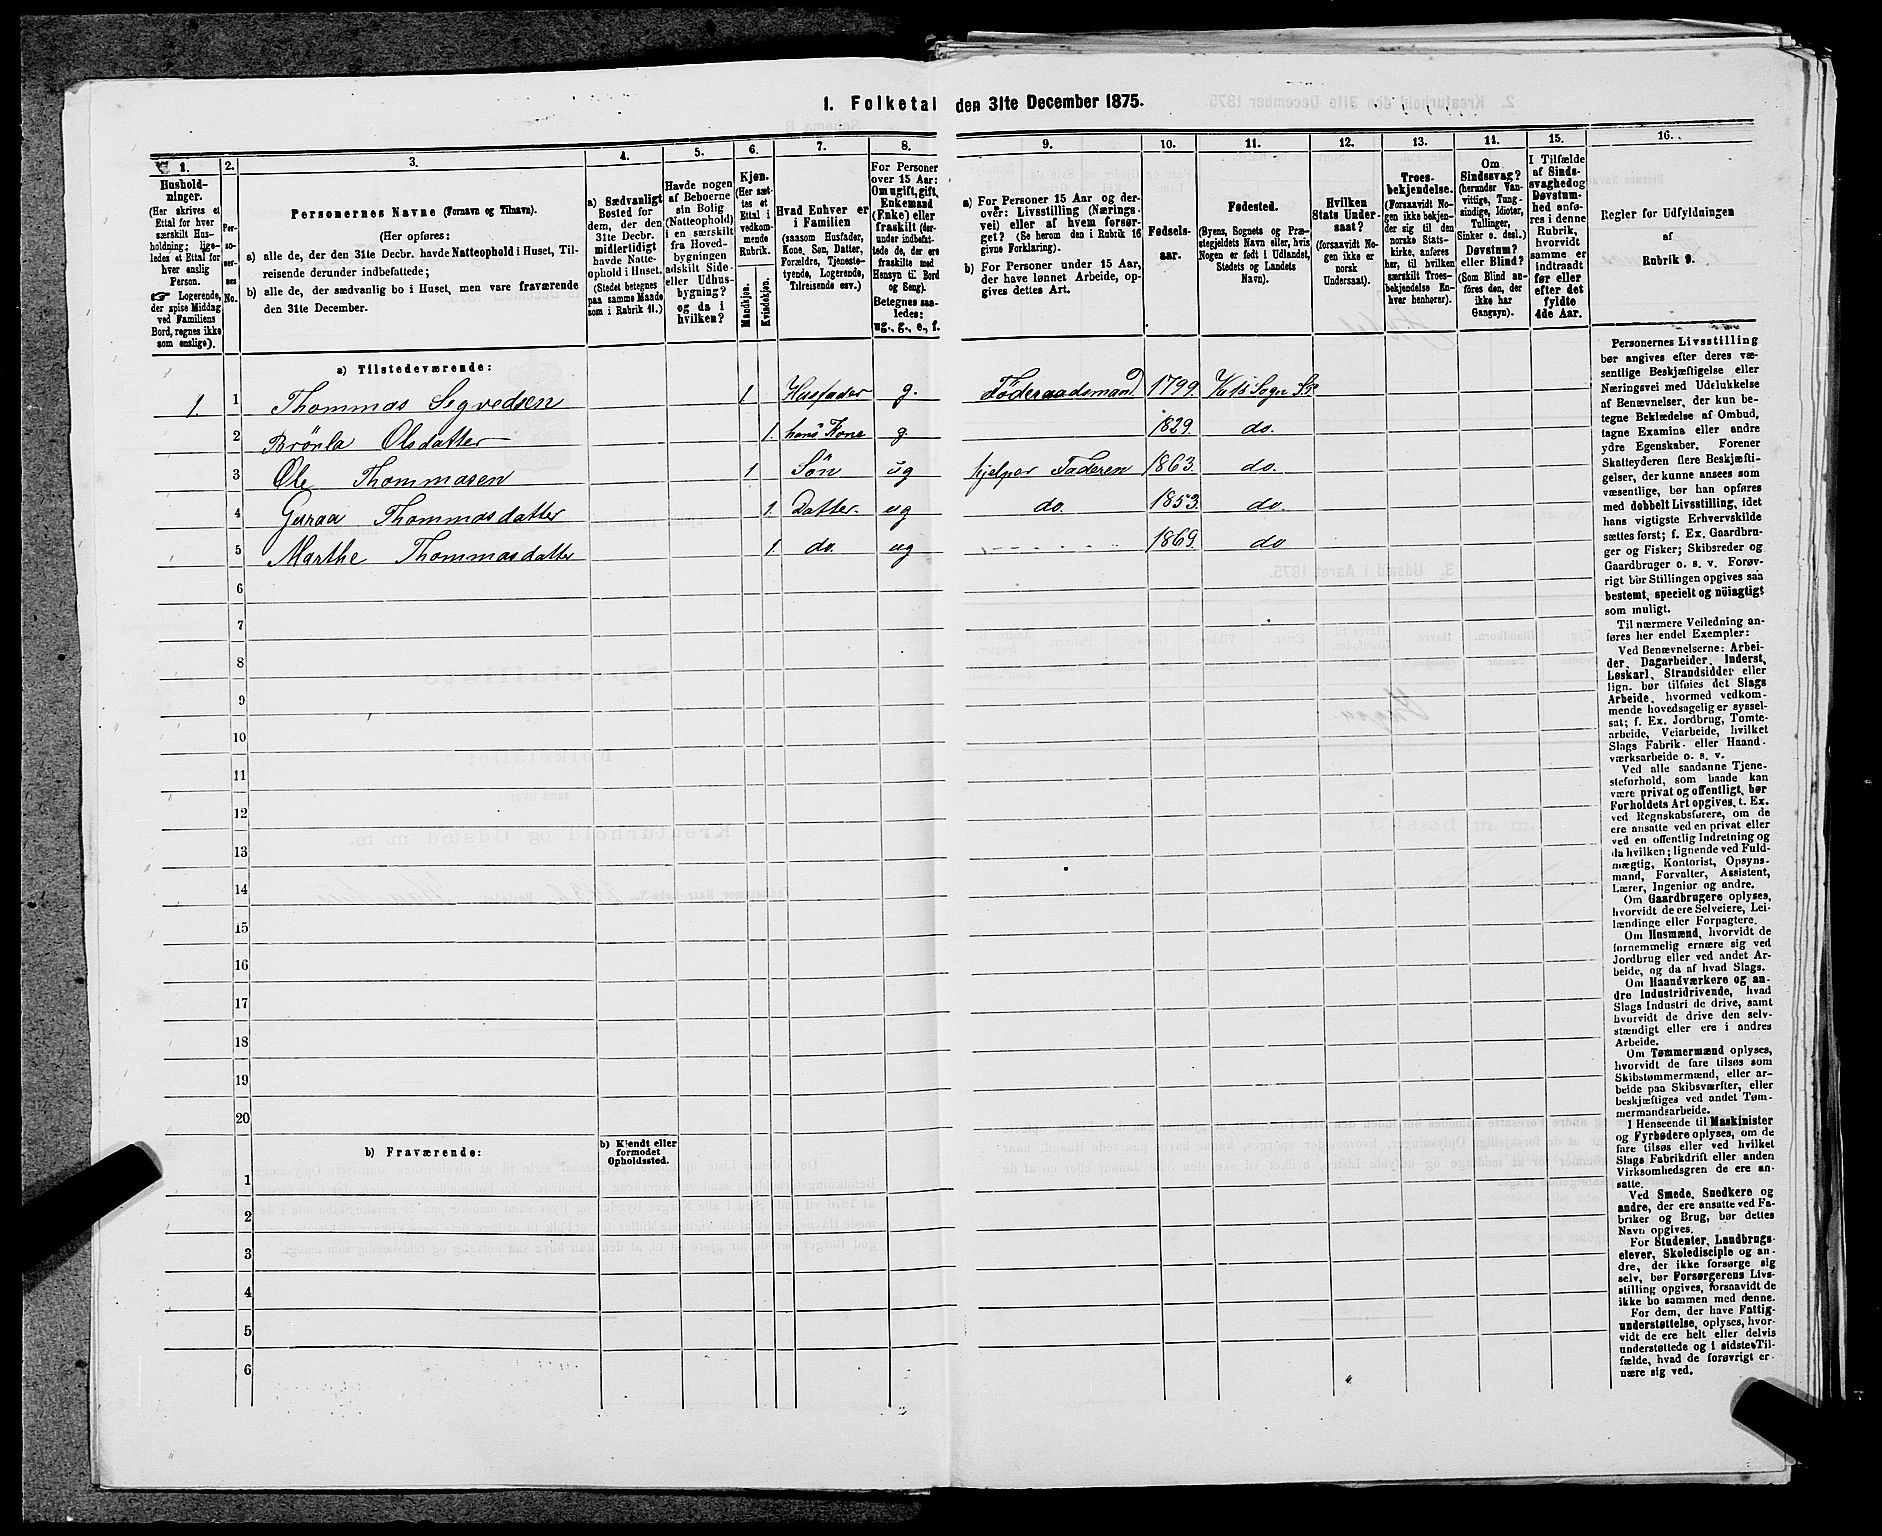 1. Folketal den 31te December 1875.
1. 2. 3. 4. 5. 6. 7. 8. 9. 10. 11. 12. 13. 14. 15. 16.
Hushold-
ninger.
(Her skrives et
Ettal for hver
særskilt Hus-
holdning; lige-
ledes et Ettal for
hver enslig
Person.
☞ Logerende,
der spise Middag
ved Familiens
Bord, regnes ikke
som enslige).
Per-
so-
ner-
nes
No.
Personernes Navne (Fornavn og Tilnavn).
(Her opføres:
a) alle de, der den 31te Decbr. havde Natteophold i Huset, Til-
reisende derunder indbefattede;
b) alle de, der sædvanlig bo i Huset, men vare fraværende
den 31te December.
a) Sædvanligt
Bosted for
dem, der den
31te Decbr.
midlertidigt
havde Natte-
ophold i Huset.
(Stedet betegnes
paa samme Maade
som i Rubrik 11.)
Havde nogen
af Beboerne
sin Bolig
(Natteophold)
i en særskilt
fra Hoved-
bygningen
adskilt Side-
eller Udhus-
bygning?
og da i
hvilken?
Kjøn.
(Her sæt-
tes et
Ettal i
vedkom-
mende
Rubrik.
Mandkjøn.
Kvindekjøn.
Hvad Enhver er
i Familien
(saasom Husfader,
Kone, Søn, Datter,
Forældre, Tjeneste-
tyende, Logerende,
Tilreisende osv.)
For Personer
over 15 Aar:
Om ugift, gift,
Enkemand
(Enke) eller
fraskilt (der-
under indbefat-
tede de, der ere
fraskilte med
Hensyn til Bord
og Seng).
Betegnes saa-
ledes:
ug., g., e., f.
a) For Personer 15 Aar og der-
over: Livsstilling (Nærings-
vei) eller af hvem forsør-
get? (Se herom den i Rubrik 16
givne Forklaring).
b) For Personer under 15 Aar,
der have lønnet Arbeide, op-
gives dettes Art.
Fødsels-
aar.
Fødested.
(Byens, Sognets og Præ-
stegjeldets Navn eller, hvis
Nogen er født i Udlandet,
Stedets og Landets
Navn).
Hvilken
Stats Under-
saat?
(forsaavidt No-
gen ikke er
norsk
Undersaat).
Troes-
bekjendelse.
(Forsaavidt No-
gen ikke bekjen-
der sig til den
norske Stats-
kirke, anføres
her, til hvilken
særskilt Troes-
bekjendelse En-
hver henhører).
Om
Sindssvag?
(herunder Van-
vittige, Tung-
sindige, Idioter,
Tullinger,
Sinker o. desl.)
Døvstum?
eller Blind?
(Som Blind an-
føres den, der
ikke har
Gangsyn).
I Tilfælde
af Sinds-
svaghed og
Døvstum-
hed anfø-
res i denne
Rubrik,
hvorvidt
samme er
indtraadt
før eller
efter det
fyldte
4de Aar.
Regler for Udfyldningen
af
Rubrik 9.
a) Tilstedeværende:
1. 1 Thommas Segvedsen 1. Husfader g. Föderaadsmand 1799.
2 Olsdatter 1. hans Kone g. 1829. do.
3 Ole Thommasen 1 Sön ug hjelper Faderen 1863. do.
4 Guraa Thommasdatter 1. Datter. ug do. 1853. do.
5 Marthe Thommasdatter 1. do. ug 1869. do
6
7
8
9
10
11
12
13
14
15
16
17
18
19
20
b) Fraværende: b) Kjendt eller
formodet
Opholdssted.
1
2
3
4
5
6
Personernes Livsstilling
bør angives efter deres væ-
sentlige Beskjæftigelse eller
Næringsvei med Udelukkelse
af Benævnelser, der kun be-
tegne Beklædelse af Ombud,
tagne Examina eller andre
ydre Egenskaber. Forener
Skatteyderen flere Beskjæfti-
gelser, der kunne ansees som
væsentlige, bør han opføres
med dobbelt Livsstilling, idet
hans vigtigste Erhvervskilde
sættes først; f. Ex. Gaardbru-
ger og Fisker; Skibsreder og
Gaardbruger o. s. v. Forøv-
rigt bør Stillingen opgives saa
bestemt, specielt og nøiagtigt
som muligt.
Til nærmere Veiledning an-
føres her endel Exempler:
Ved Benævnelserne: Arbei-
der, Dagarbeider, Inderst,
Løskarl, Strandsidder eller
lign. bør tilføies det Slags
Arbeide, hvormed vedkom-
mende hovedsagelig er syssel-
sat; f. Ex. Jordbrug, Tomte-
arbeide, Veiarbeide, hvilket
Slags Fabrik- eller Haand-
værksarbeide o. s. v.
Ved alle saadanne Tjene-
steforhold, som baade kan
være privat og offentligt, bør
Forholdets Art opgives, t. Ex.
ved Regnskabsførere, om de
ere ansatte ved en privat eller
ved en offentlig Indretning og
da hvilken; lignende ved Fuld-
mægtig, Kontorist, Opsyns-
mand, Forvalter, Assistent,
Lærer, Ingeniør og andre.
Om Gaardbrugere oplyses,
hvorvidt de ere Selveiere, Lei-
lændinge eller Forpagtere.
Om Husmænd, hvorvidt de
fornemmelig ernære sig ved
Jordbrug eller ved andet Ar-
beide, og da af hvad Slags.
Om Haandværkere og an-
dre Industridrivende, hvad
Slags Industri de drive, samt
hvorvidt de drive den selv-
stændigt eller ere i andres
Arbeide.
Om Tømmermænd oplyses,
hvorvidt de fare tilsøs som
Skibstømmermænd, eller ar-
beide paa Skibsværfter, eller
beskjæftiges ved andet Tøm-
mermandsarbeide.
I Henseende til Maskinister
og Fyrbødere oplyses, om de
fare tilsøs eller ved hvilket
Slags Fabrikdrift eller anden
Virksomhedsgren de ere an-
satte.
Ved Smede, Snedkere og
andre, der ere ansatte ved Fa-
briker og Brug, bør dettes
Navn opgives.
For Studenter, Landbrugs-
elever, Skoledisciple og an-
dre, der ikke forsørge sig
selv, bør Forsørgerens Livs-
stilling opgives, forsaavidt de
ikke bo sammen med denne.
For dem, der have Fattig-
understøttelse, oplyses, hvor-
vidt de ere helt eller delvis
understøttede og i sidste Til-
fælde, hvad de forøvrigt er-
nære sig ved.